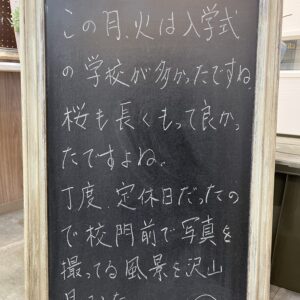 この月、火は入学式
の学校が多かったですね。
桜も長くもって良かっ
たですよね。
丁度、定休日だったの
で校門前で写真を
撮ってる風景を沢山